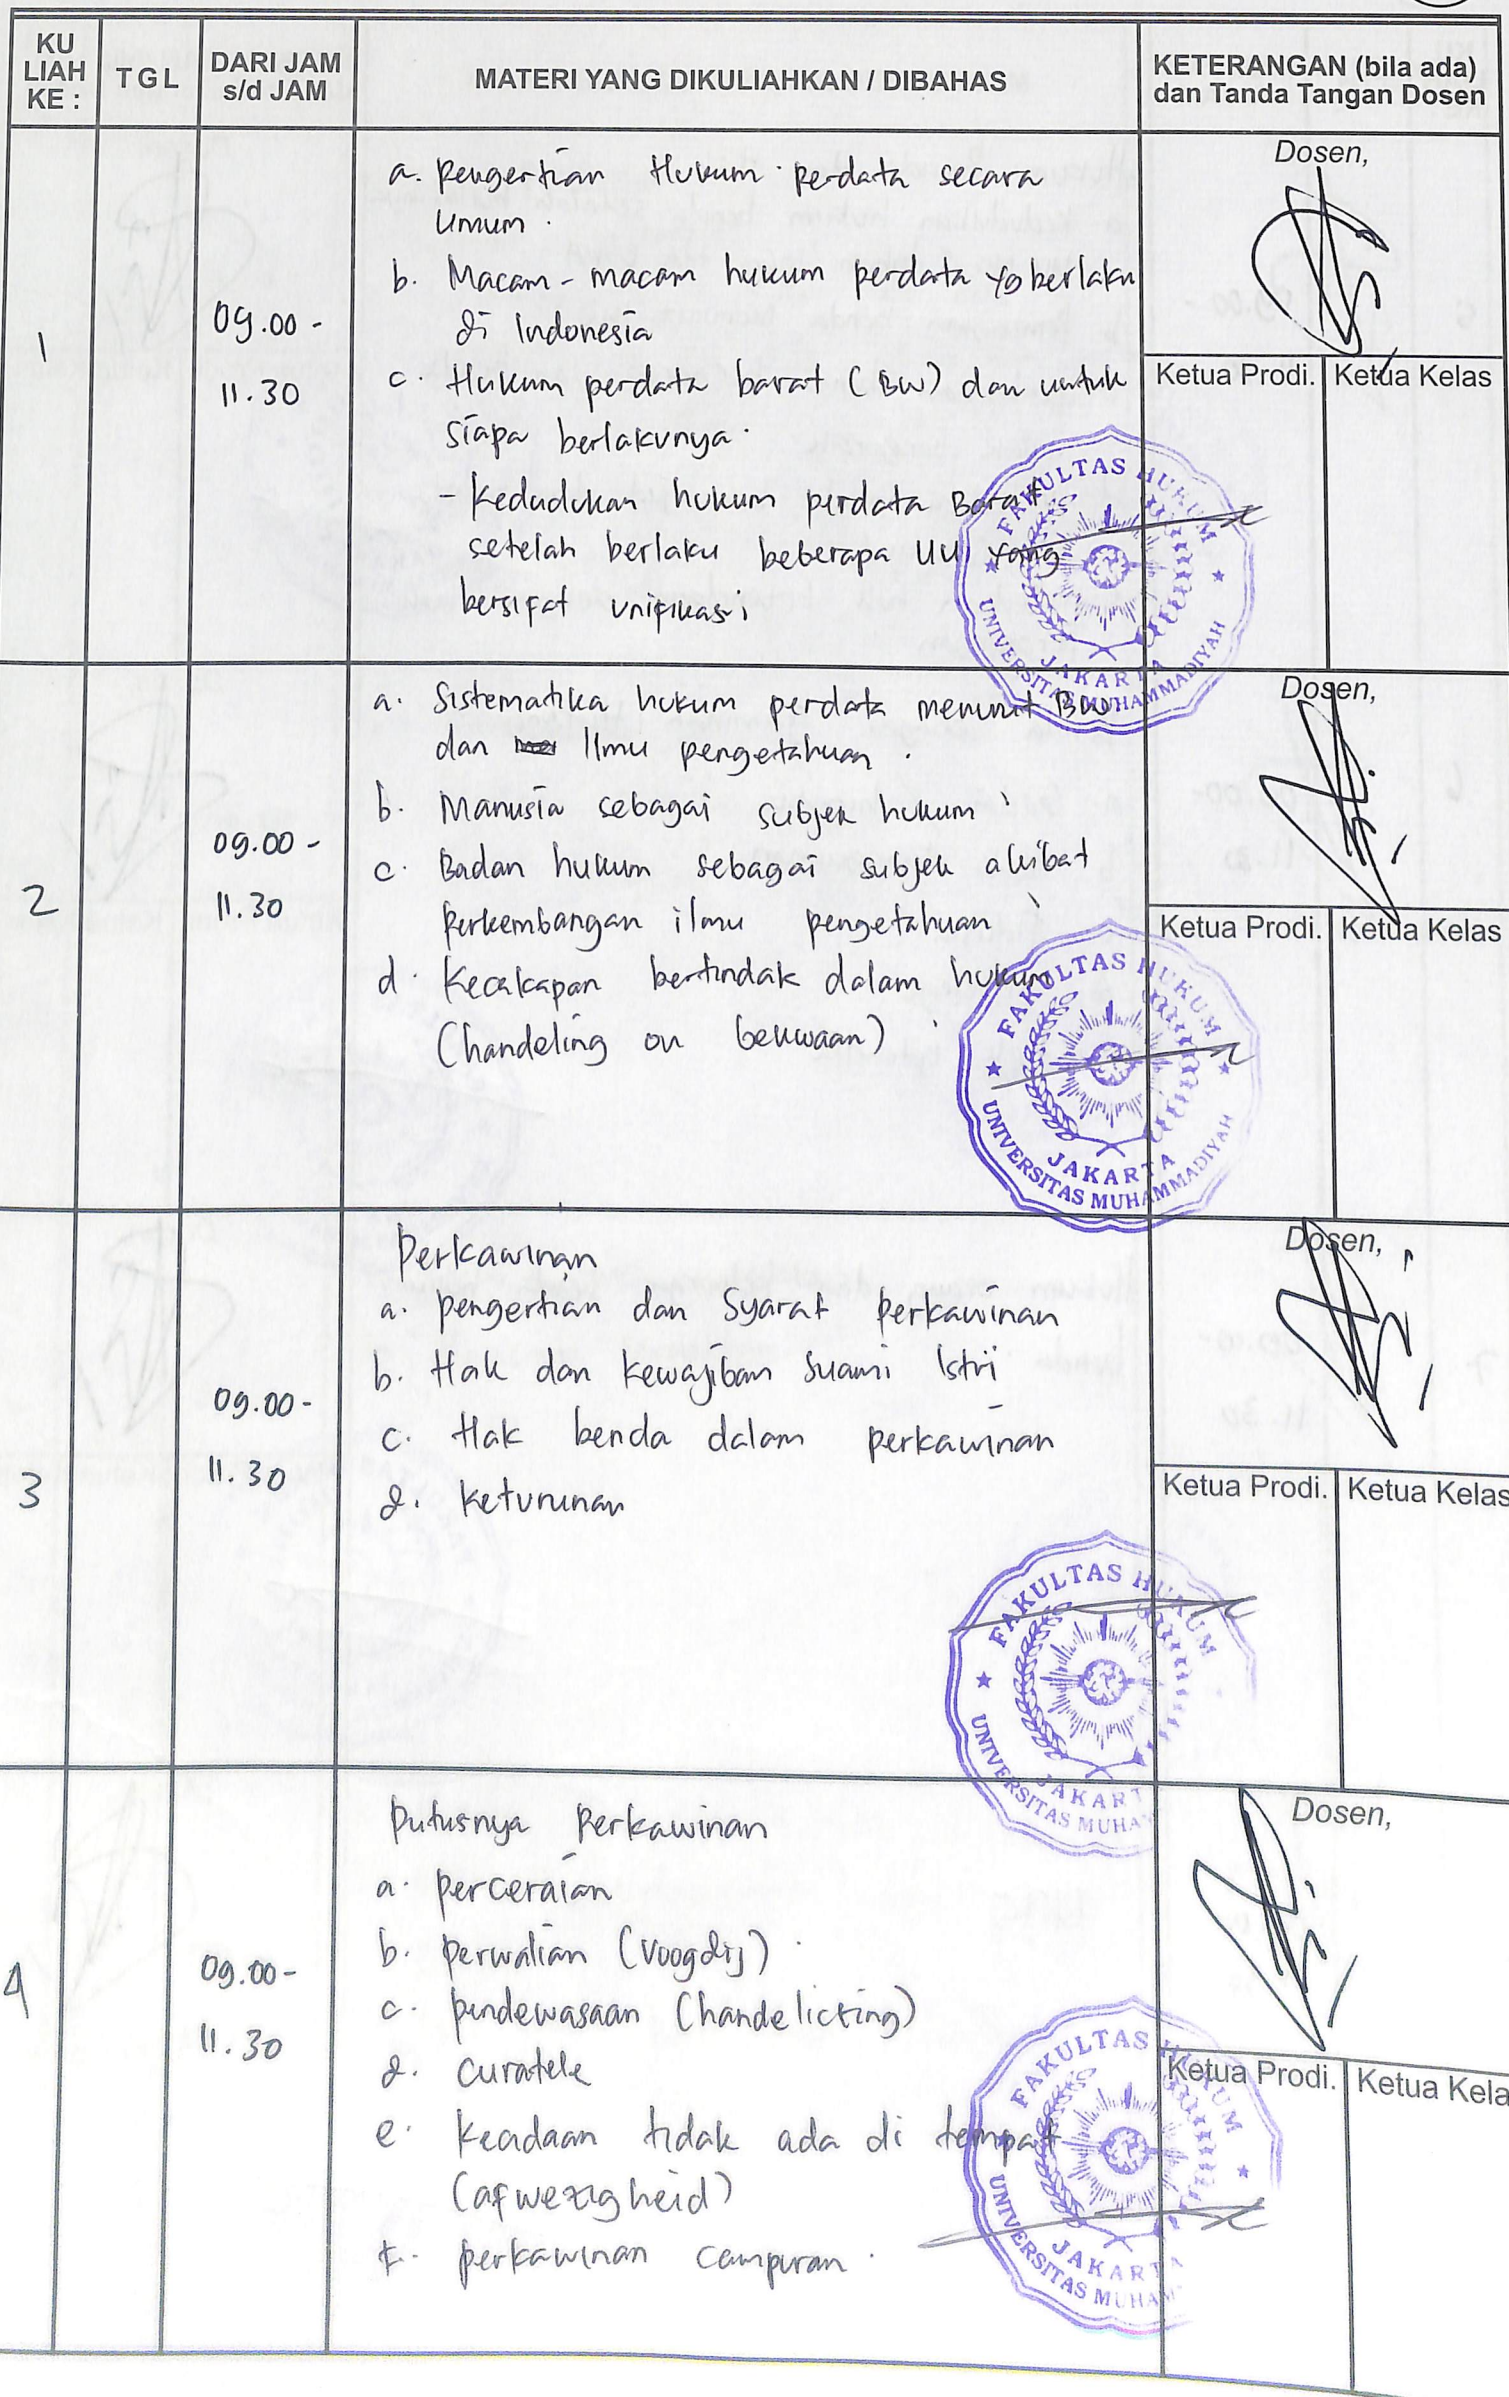 KU LIAH KE :
TGL
DARI JAM s/d JAM
MATERI YANG DIKULIAHKAN / DIBAHAS
KETERANGAN (bila ada) dan Tanda Tangan Dosen
1
09.00 -
11.30
a. Pengertian Hukum perdata secara
Umum.
b. Macam - macam hukum perdata yg berlaku
di Indonesia
c. Hukum perdata barat (BW) dan untuk
siapa berlakunya.
- Kedudukan hukum perdata Barat
setelah berlaku beberapa UU yang
bersifat unifikasi
Dosen,
Ketua Prodi.
Ketua Kelas
FAKULTAS HUKUM
UNIVERSITAS MUHAMMADIYAH
JAKARTA
2
09.00 -
11.30
a. Sistematika hukum perdata menurut BW
dan Ilmu pengetahuan.
b. Manusia sebagai subjek hukum
c. Badan hukum sebagai subjek akibat
perkembangan ilmu pengetahuan
d. Kecakapan bertindak dalam hukum
(handeling on bekwaan)
Dosen,
Ketua Prodi.
Ketua Kelas
FAKULTAS HUKUM
UNIVERSITAS MUHAMMADIYAH
JAKARTA
3
09.00 -
11.30
Perkawinan
a. pengertian dan Syarat perkawinan
b. Hak dan kewajiban Suami Istri
c. Hak benda dalam perkawinan
d. keturunan
Dosen,
Ketua Prodi.
Ketua Kelas
FAKULTAS HUKUM
UNIVERSITAS MUHA
JAKART
4
09.00 -
11.30
Putusnya Perkawinan
a. perceraian
b. perwalian (Voogdij)
c. pendewasaan (handelicting)
d. curatele
e. keadaan tidak ada di tempat
(afwezigheid)
f. perkawinan campuran.
Dosen,
Ketua Prodi.
Ketua Kela
FAKULTAS HUKUM
UNIVERSITAS MUHAM
JAKARTA